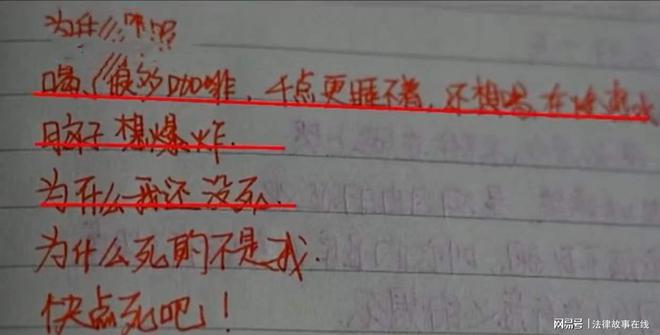 为什么
喝了很多咖啡，千点更睡不着，还想喝
脑子想爆炸.
为什么我还没死.
为什么死的不是我.
快点死吧！
网易号 | 法律故事在线